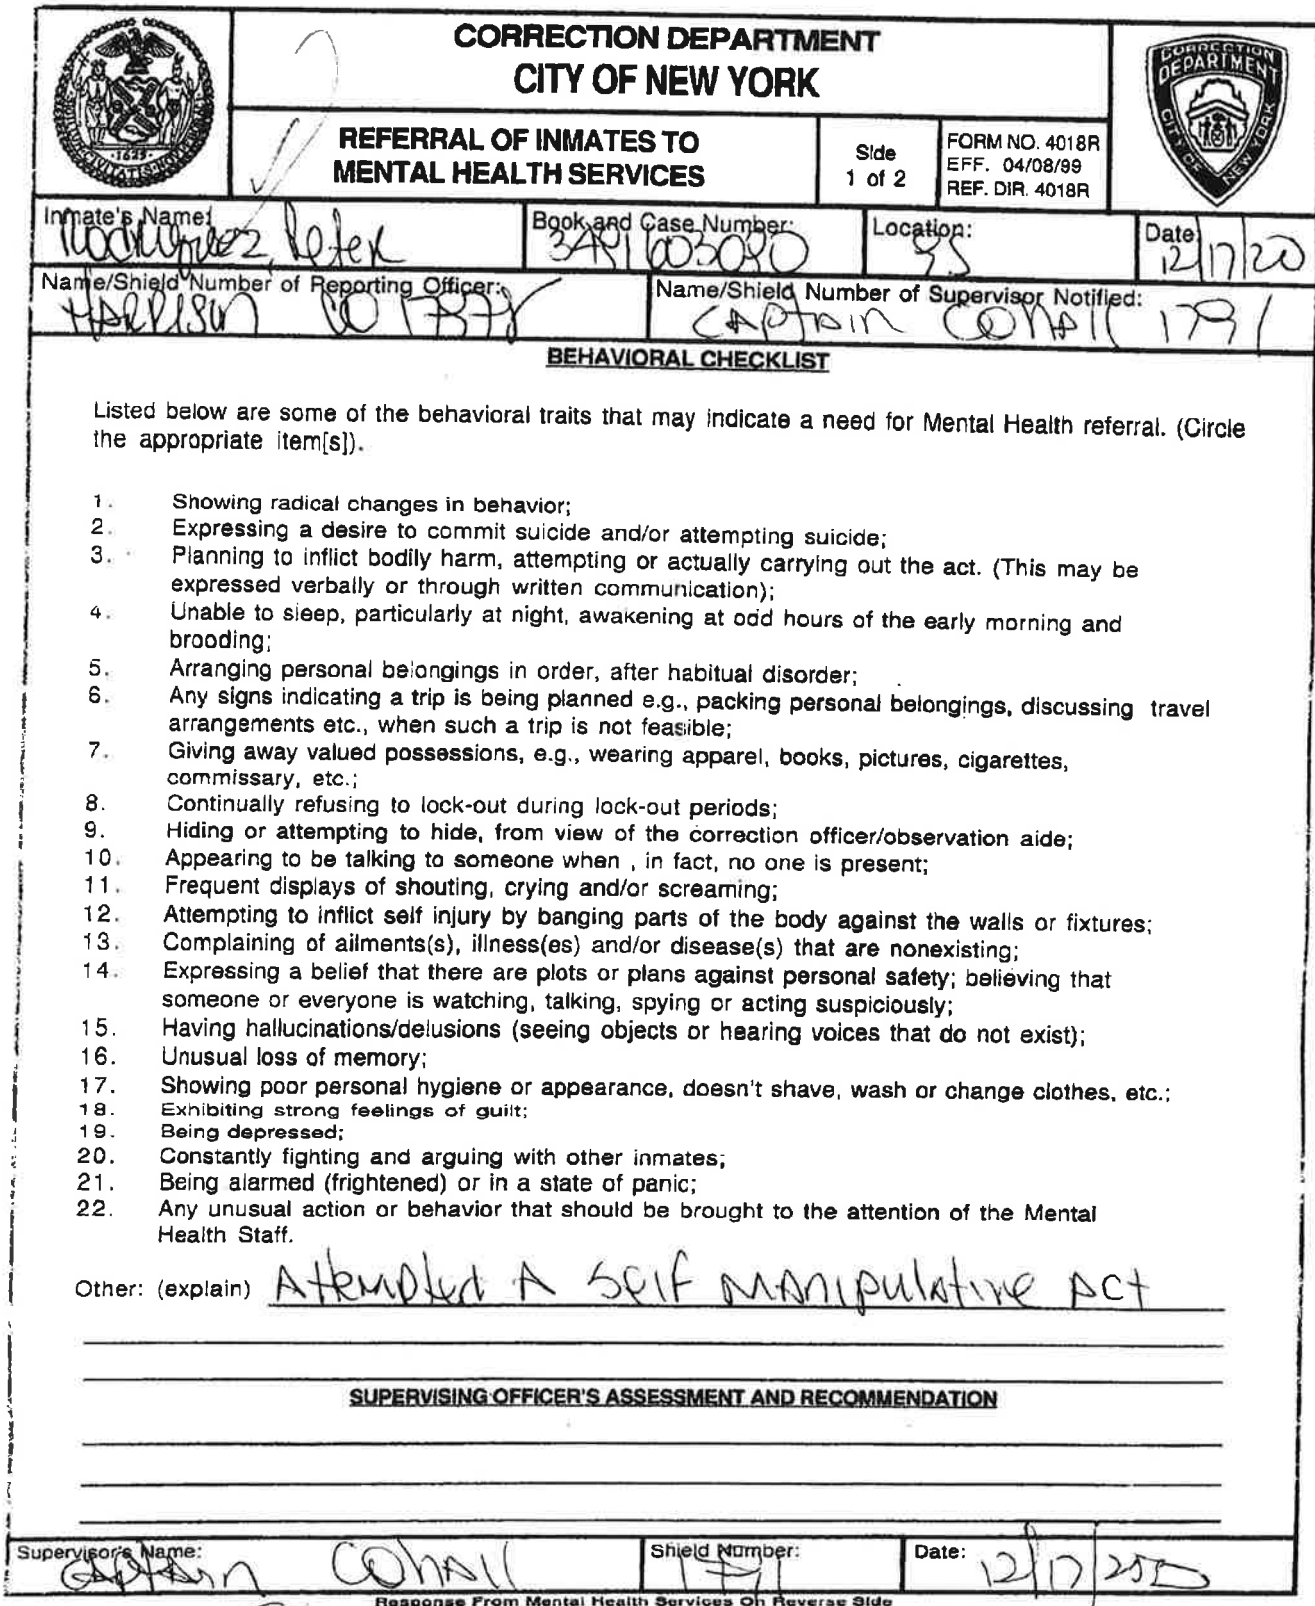 CORRECTION DEPARTMENT
CITY OF NEW YORK
REFERRAL OF INMATES TO
MENTAL HEALTH SERVICES
Side
1 of 2
FORM NO. 4018R
EFF. 04/08/99
REF. DIR. 4018R
CORRECTION
DEPARTMENT
CITY OF
NEW YORK
1625
Inmate's Name:
Rodriguez, Peter
Book and Case Number:
3491603090
Location:
Date
12/17/20
Name/Shield Number of Reporting Officer:
HARRISON CO
Name/Shield Number of Supervisor Notified:
CAPTAIN COHALL 1791
BEHAVIORAL CHECKLIST
Listed below are some of the behavioral traits that may indicate a need for Mental Health referral. (Circle
the appropriate item[s]).
1. Showing radical changes in behavior;
2. Expressing a desire to commit suicide and/or attempting suicide;
3. Planning to inflict bodily harm, attempting or actually carrying out the act. (This may be
expressed verbally or through written communication);
4. Unable to sleep, particularly at night, awakening at odd hours of the early morning and
brooding;
5. Arranging personal belongings in order, after habitual disorder;
6. Any signs indicating a trip is being planned e.g., packing personal belongings, discussing travel
arrangements etc., when such a trip is not feasible;
7. Giving away valued possessions, e.g., wearing apparel, books, pictures, cigarettes,
commissary, etc.;
8. Continually refusing to lock-out during lock-out periods;
9. Hiding or attempting to hide, from view of the correction officer/observation aide;
10. Appearing to be talking to someone when , in fact, no one is present;
11. Frequent displays of shouting, crying and/or screaming;
12. Attempting to inflict self injury by banging parts of the body against the walls or fixtures;
13. Complaining of ailments(s), illness(es) and/or disease(s) that are nonexisting;
14. Expressing a belief that there are plots or plans against personal safety; believing that
someone or everyone is watching, talking, spying or acting suspiciously;
15. Having hallucinations/delusions (seeing objects or hearing voices that do not exist);
16. Unusual loss of memory;
17. Showing poor personal hygiene or appearance, doesn't shave, wash or change clothes, etc.;
18. Exhibiting strong feelings of guilt;
19. Being depressed;
20. Constantly fighting and arguing with other inmates;
21. Being alarmed (frightened) or in a state of panic;
22. Any unusual action or behavior that should be brought to the attention of the Mental
Health Staff.
Other: (explain) Attempted A Self MANipulative Act
SUPERVISING OFFICER'S ASSESSMENT AND RECOMMENDATION
Supervisor's Name:
Captain Cohall
Shield Number:
1791
Date:
12/17/
Response From Mental Health Services On Reverse Side